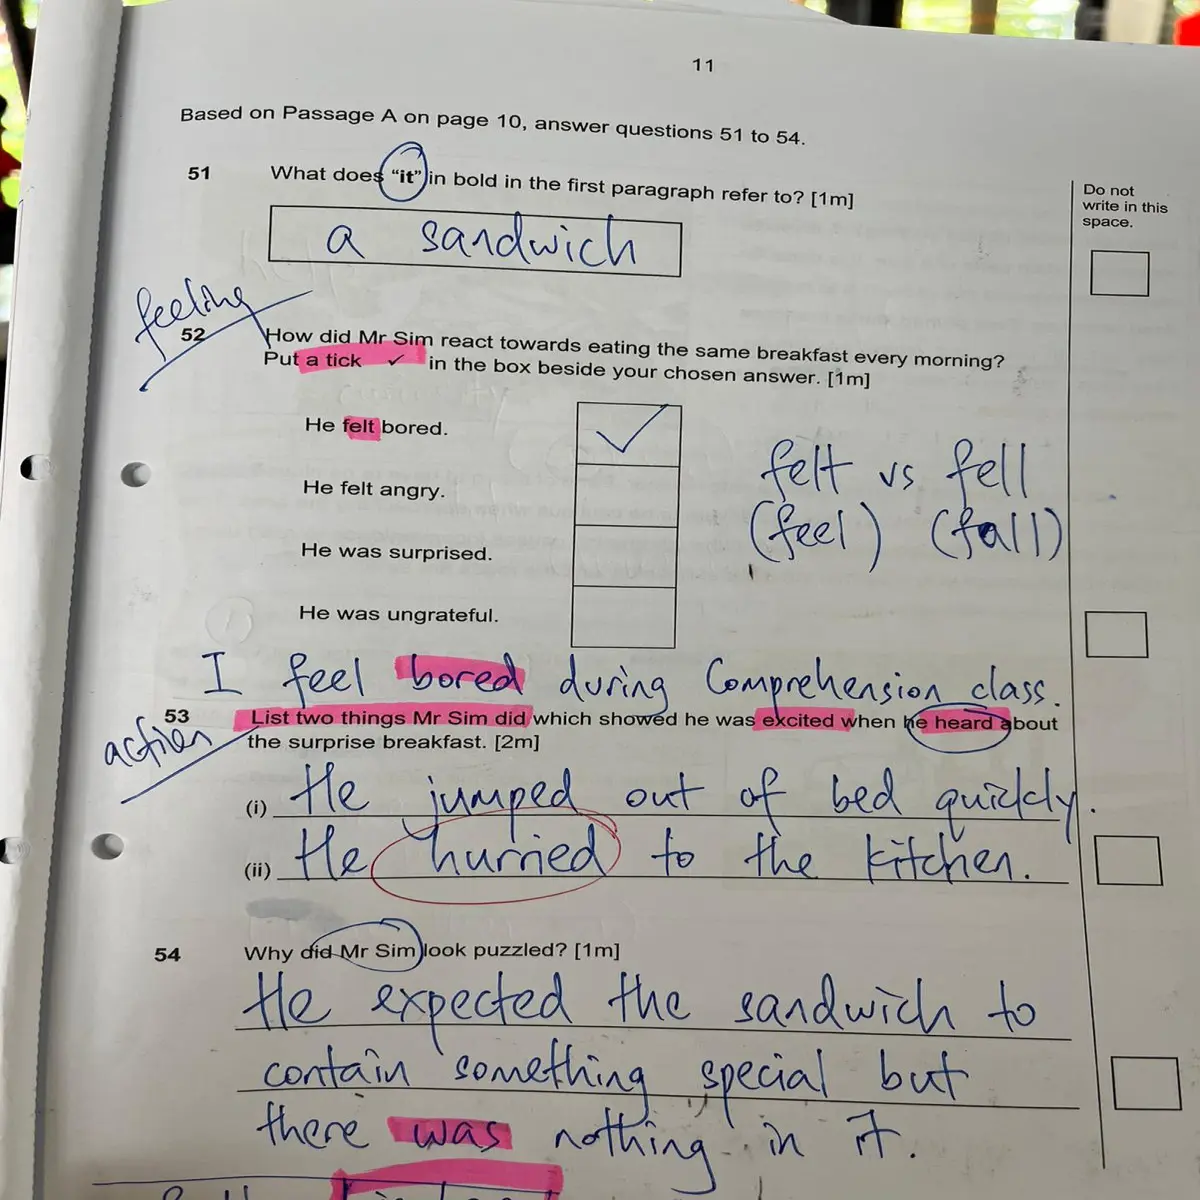 11
Based on Passage A on page 10, answer questions 51 to 54.
51 What does "it" in bold in the first paragraph refer to? [1m]
Do not
write in this
space.
a sandwich
feeling
52 How did Mr Sim react towards eating the same breakfast every morning?
Put a tick ✓ in the box beside your chosen answer. [1m]
He felt bored. ✓
He felt angry.
He was surprised.
He was ungrateful.
felt vs fell
(feel) (fall)
I feel bored during Comprehension class.
action
53 List two things Mr Sim did which showed he was excited when he heard about
the surprise breakfast. [2m]
(i) He jumped out of bed quickly.
(ii) He hurried to the kitchen.
54 Why did Mr Sim look puzzled? [1m]
He expected the sandwich to
contain something special but
there was nothing in it.